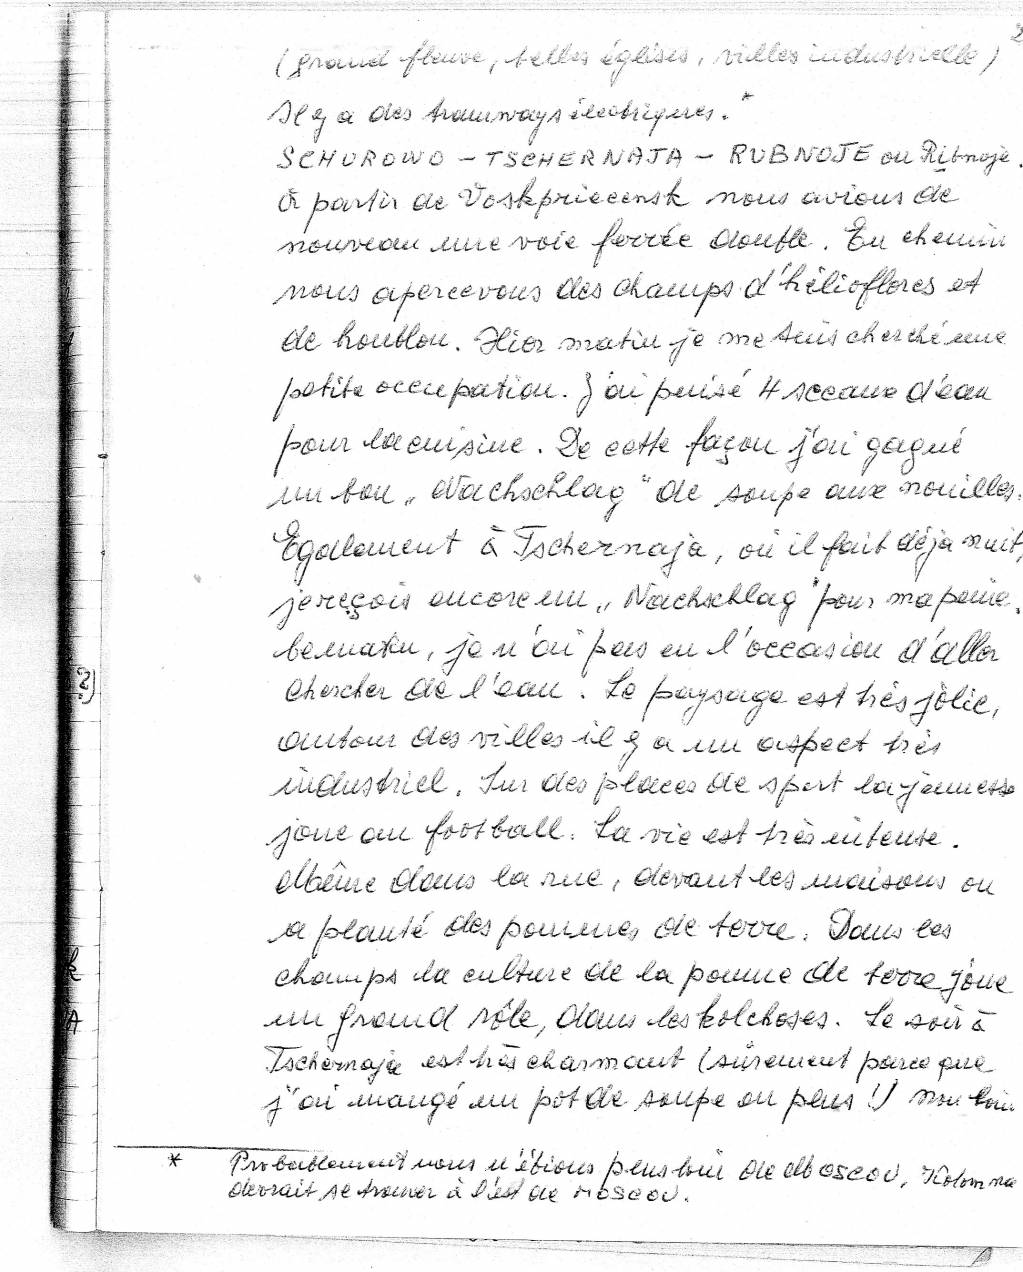 2
(grand fleuve, belles églises, villes industrielle)
Il y a des tramways électriques.*
SCHUROWO – TSCHERNAJA – RUBNOJE ou Ribnoje.
à partir de Voskpriecensk nous avions de
nouveau une voie ferrée double. En chemin
nous apercevons des champs d'hélioflores et
de houblon. Hier matin je me suis cherché une
petite occupation. J'ai puisé 4 sceaux d'eau
pour la cuisine. De cette façon j'ai gagné
un bon „Nachschlag" de soupe aux nouilles.
Egalement à Tschernaja, où il fait déja nuit,
je reçois encore un „Nachschlag" pour ma peine.
je n'ai pas eu l'occasion d'aller
chercher de l'eau. Le paysage est très jolie,
autour des villes il y a un aspect très
industriel. Sur des places de sport la jeunesse
joue au football. La vie est très intense.
Même dans la rue, devant les maisons on
a planté des pommes de terre. Dans les
champs la culture de la pomme de terre joue
un grand rôle, dans les kolchoses. Le soir à
Tschernaja est très charmant (sûrement parce que
j'ai mangé un pot de soupe en plus!) non loin
* Probablement nous n'étions plus loin de Moscou, Kolomna
devrait se trouver à l'est de Moscou.
2)
k
A